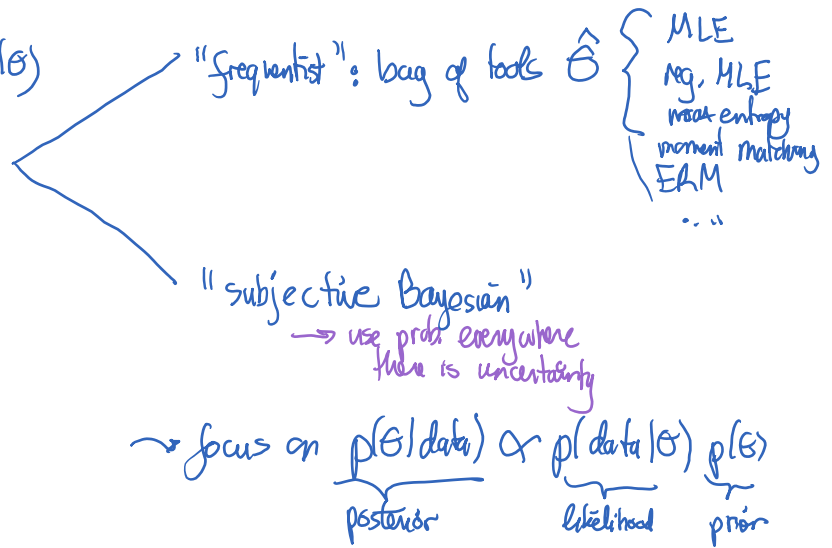 (θ)
"frequentist": bag of tools θ̂
MLE
reg. MLE
max entropy
moment matching
ERM
....
"subjective Bayesian"
→ use prob. everywhere
there is uncertainty
→ focus on p(θ|data) ∝ p(data|θ) p(θ)
posterior likelihood prior